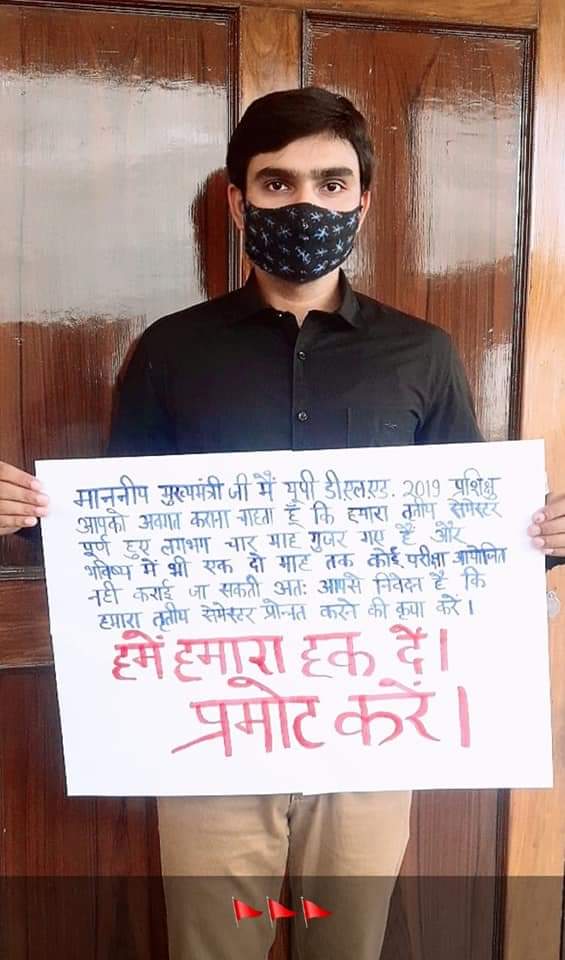 माननीय मुख्यमंत्री जी मैं यूपी डीएलएड. 2019 प्रशिक्षु
आपको अवगत कराना चाहता हूँ कि हमारा तृतीय सेमेस्टर
पूर्ण हुए लगभग चार माह गुजर गए हैं और
भविष्य में भी एक दो माह तक कोई परीक्षा आयोजित
नही कराई जा सकती अतः आपसे निवेदन है कि
हमारा तृतीय सेमेस्टर प्रोन्नत करने की कृपा करें।
हमें हमारा हक दें।
प्रमोट करें।